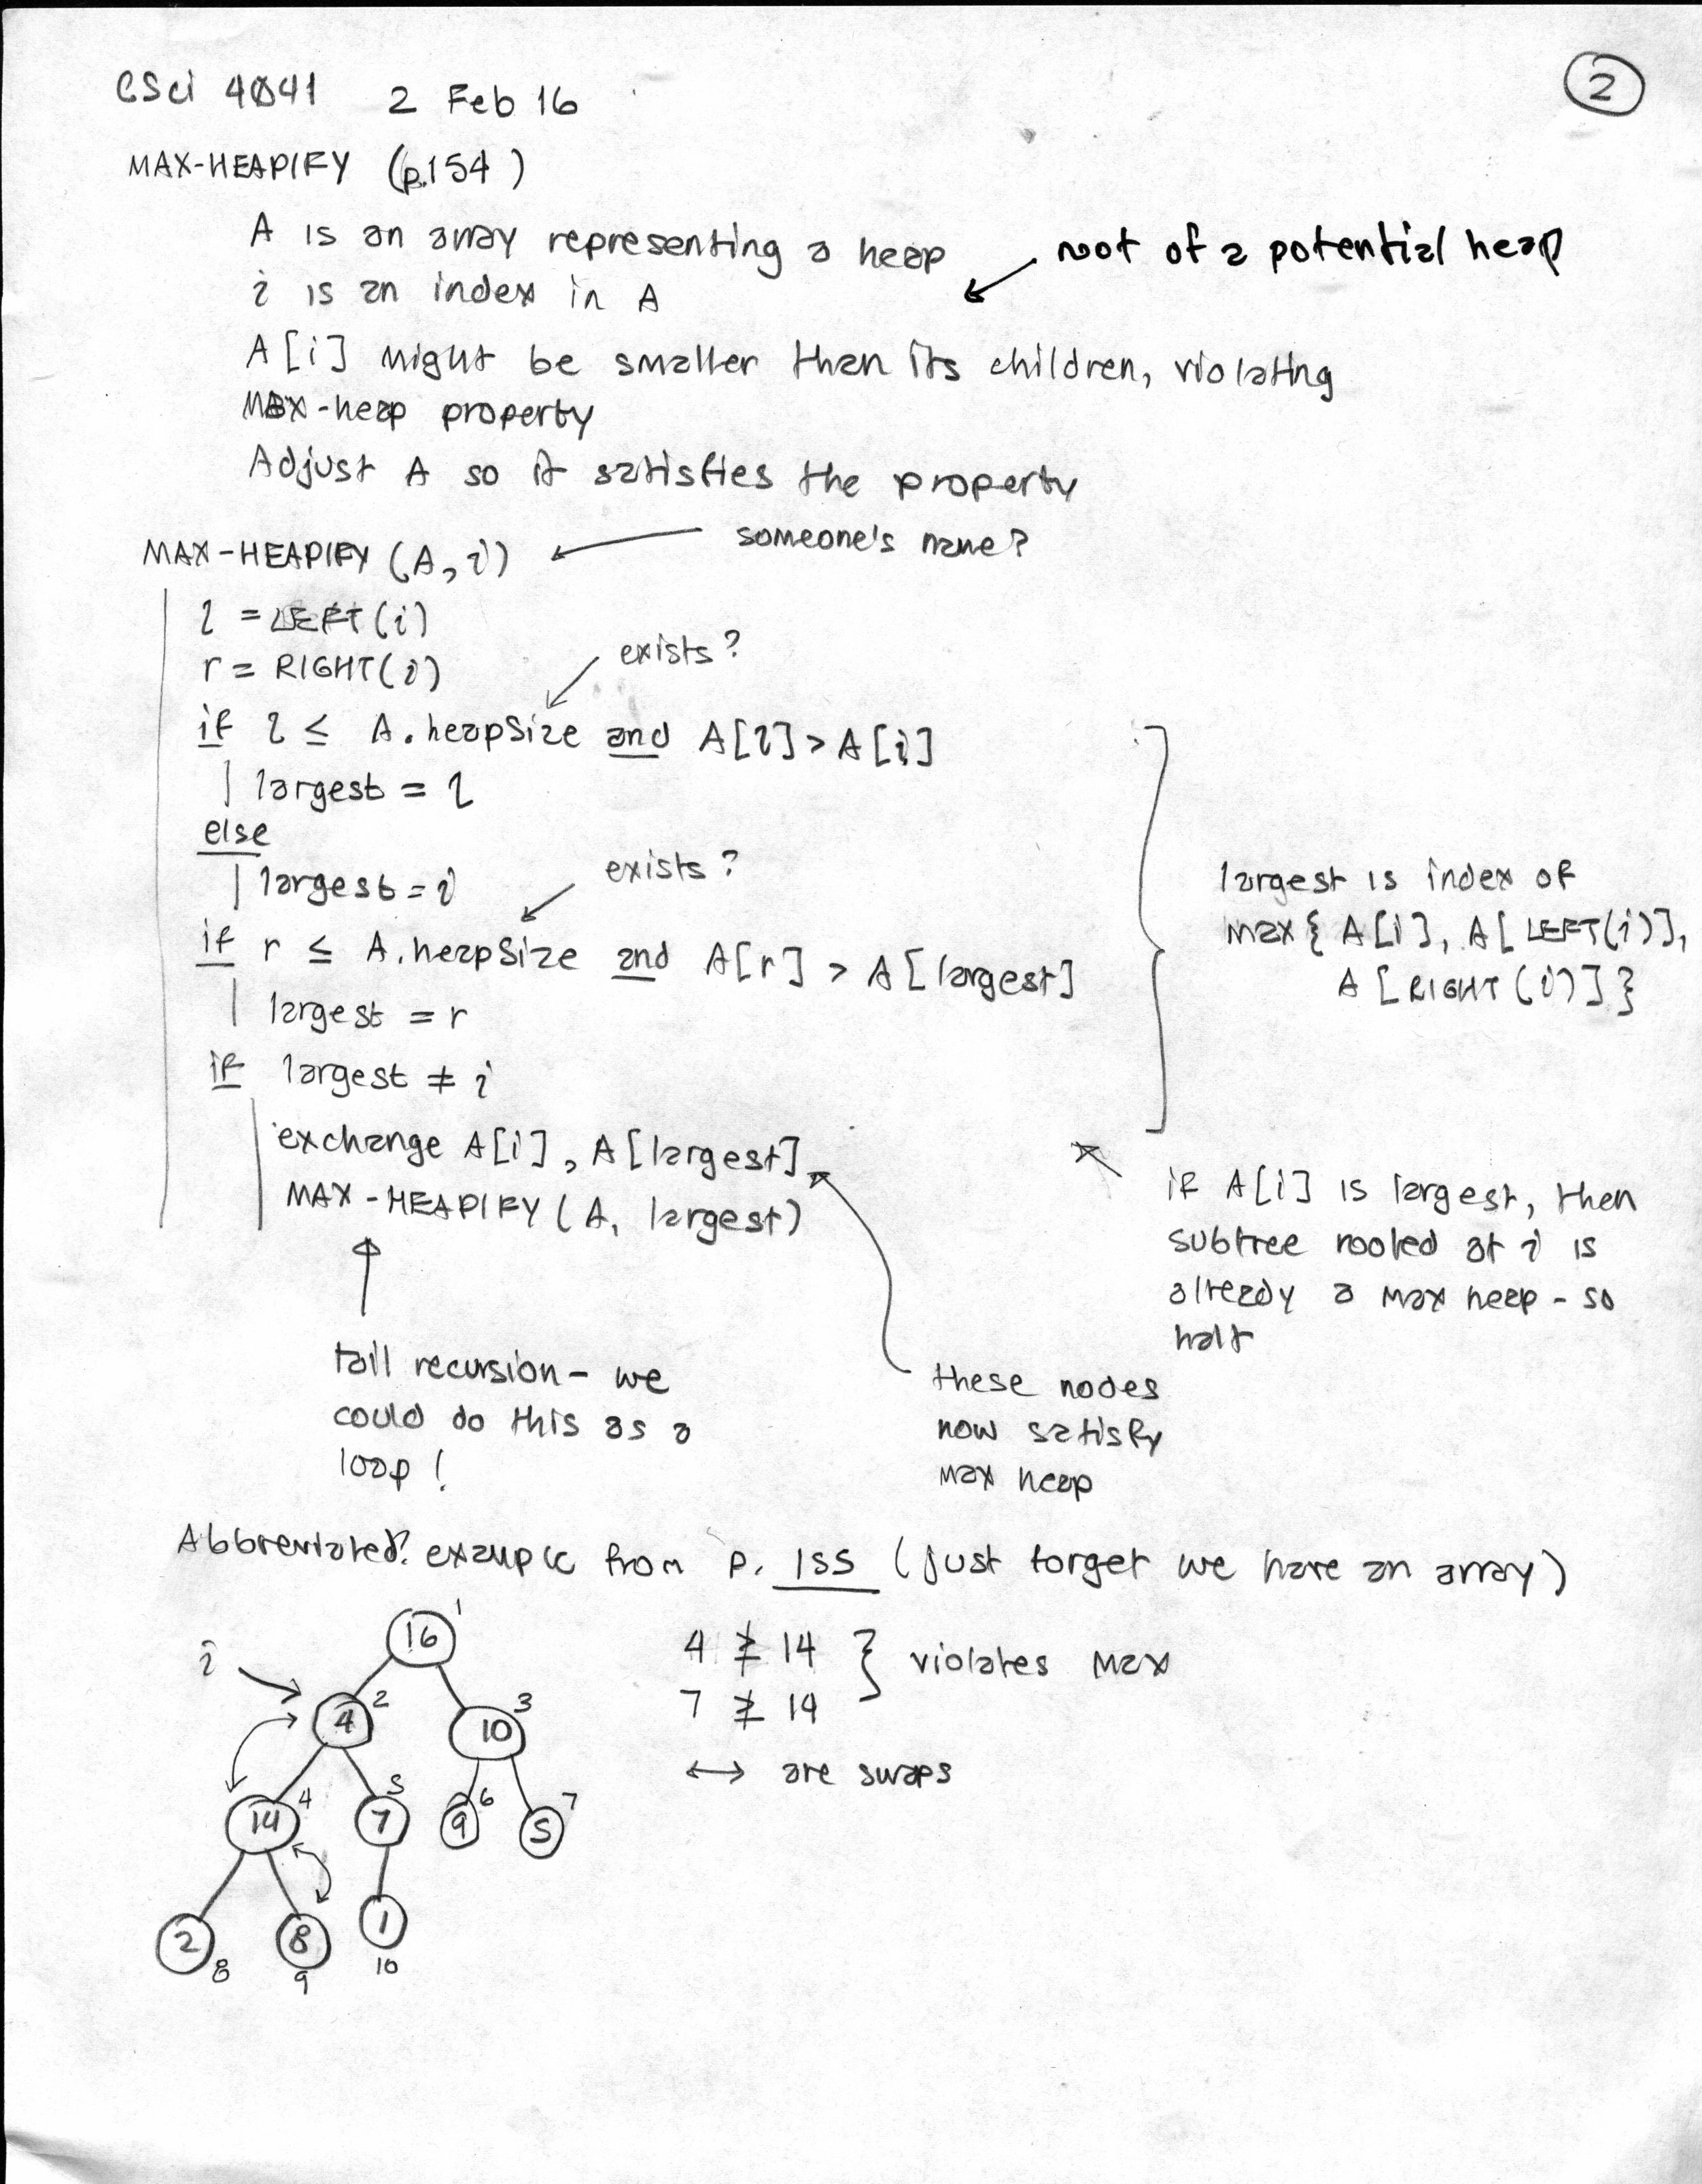 CSci 4041 2 Feb 16
2
MAX-HEAPIFY (p.154)
A is an array representing a heap
root of a potential heap
i is an index in A
A[i] might be smaller than its children, violating
max-heap property
Adjust A so it satisfies the property
MAX-HEAPIFY (A, i)
someone's name?
l = LEFT(i)
r = RIGHT(i)
exists?
if l ≤ A.heapSize and A[l] > A[i]
largest = l
else
largest = i
exists?
if r ≤ A.heapSize and A[r] > A[largest]
largest = r
largest is index of
max{ A[i], A[LEFT(i)],
A[RIGHT(i)]}
if largest ≠ i
exchange A[i], A[largest]
MAX-HEAPIFY(A, largest)
if A[i] is largest, then
subtree rooted at i is
already a max heap - so
halt
tail recursion - we
could do this as a
loop!
these nodes
now satisfy
max heap
Abbreviated? example from p. 155 (just forget we have an array)
16 1
i
4 2 10 3
14 4 7 5 9 6 5 7
2 8 8 9 1 10
4 ≱ 14 } violates max
7 ≱ 14
↔ are swaps